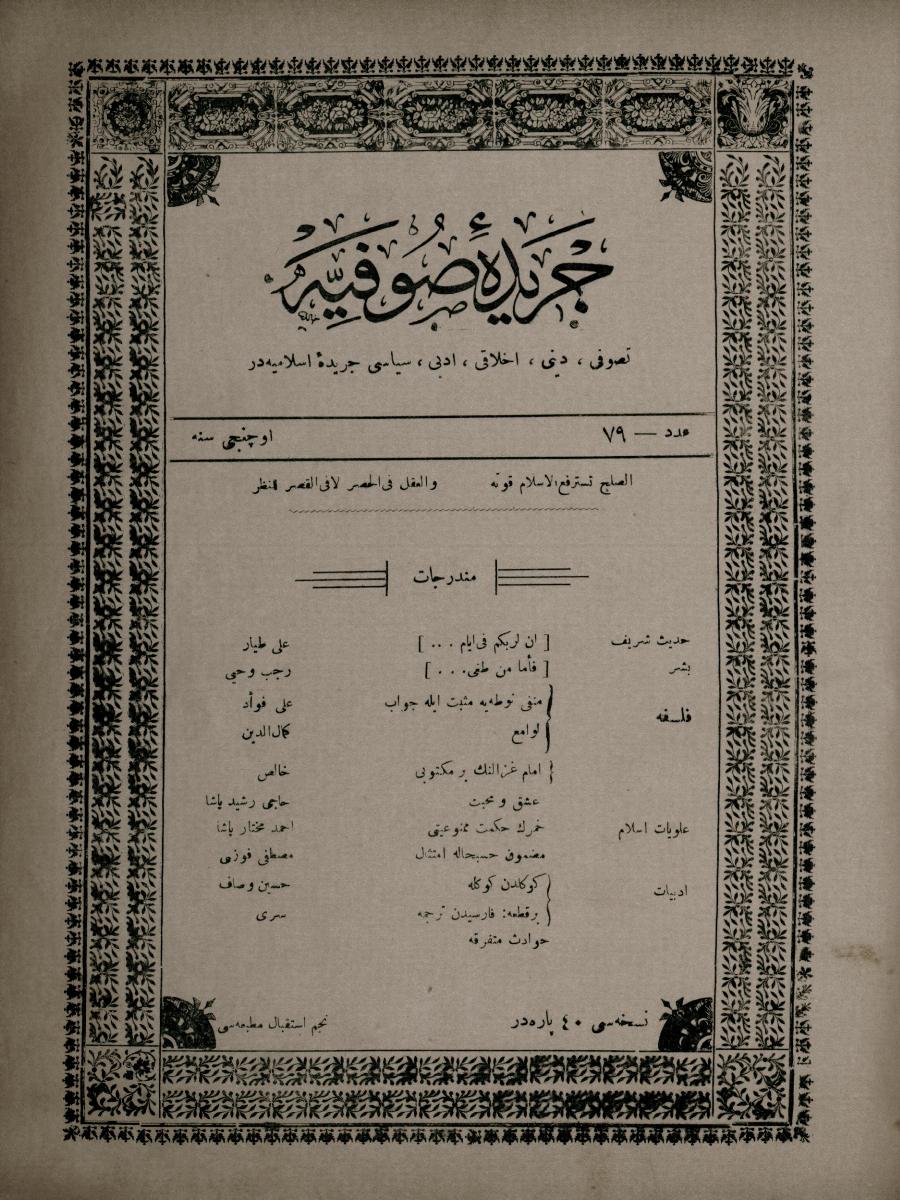 جريدۀ صوفيه
تصوفى ، دينى ، اخلاقى ، ادبى ، سياسى جريدۀ اسلاميه‌در
عدد — ٧٩ اوچنجى سنه
الصلح تسترفع الاسلام قوته والعقل فى الحصر لا فى القصر للنظر
مندرجات
حديث شريف [ ان لربكم فى ايام . . . ] على طيار
بشر [ فأما من طغى . . . ] رجب وحيى
فلسفه { منفى نوطه‌يه مثبت ايله جواب على فوأد
لوامع كمال‌الدين
{ امام غزالينك بر مكتوبى خالص
عشق و محبت حاجى رشيد پاشا
علويات اسلام خمرك حكمت ممنوعيتى احمد مختار پاشا
حسبحاله امتثال مصطفى فوزى
ادبيات { كوكلدن كوكله حسين وصاف
بر قطعه: فارسيدن ترجمه سرى
حوادث متفرقه
نسخه‌سى ٤٠ پاره‌در نجم استقبال مطبعه‌سى